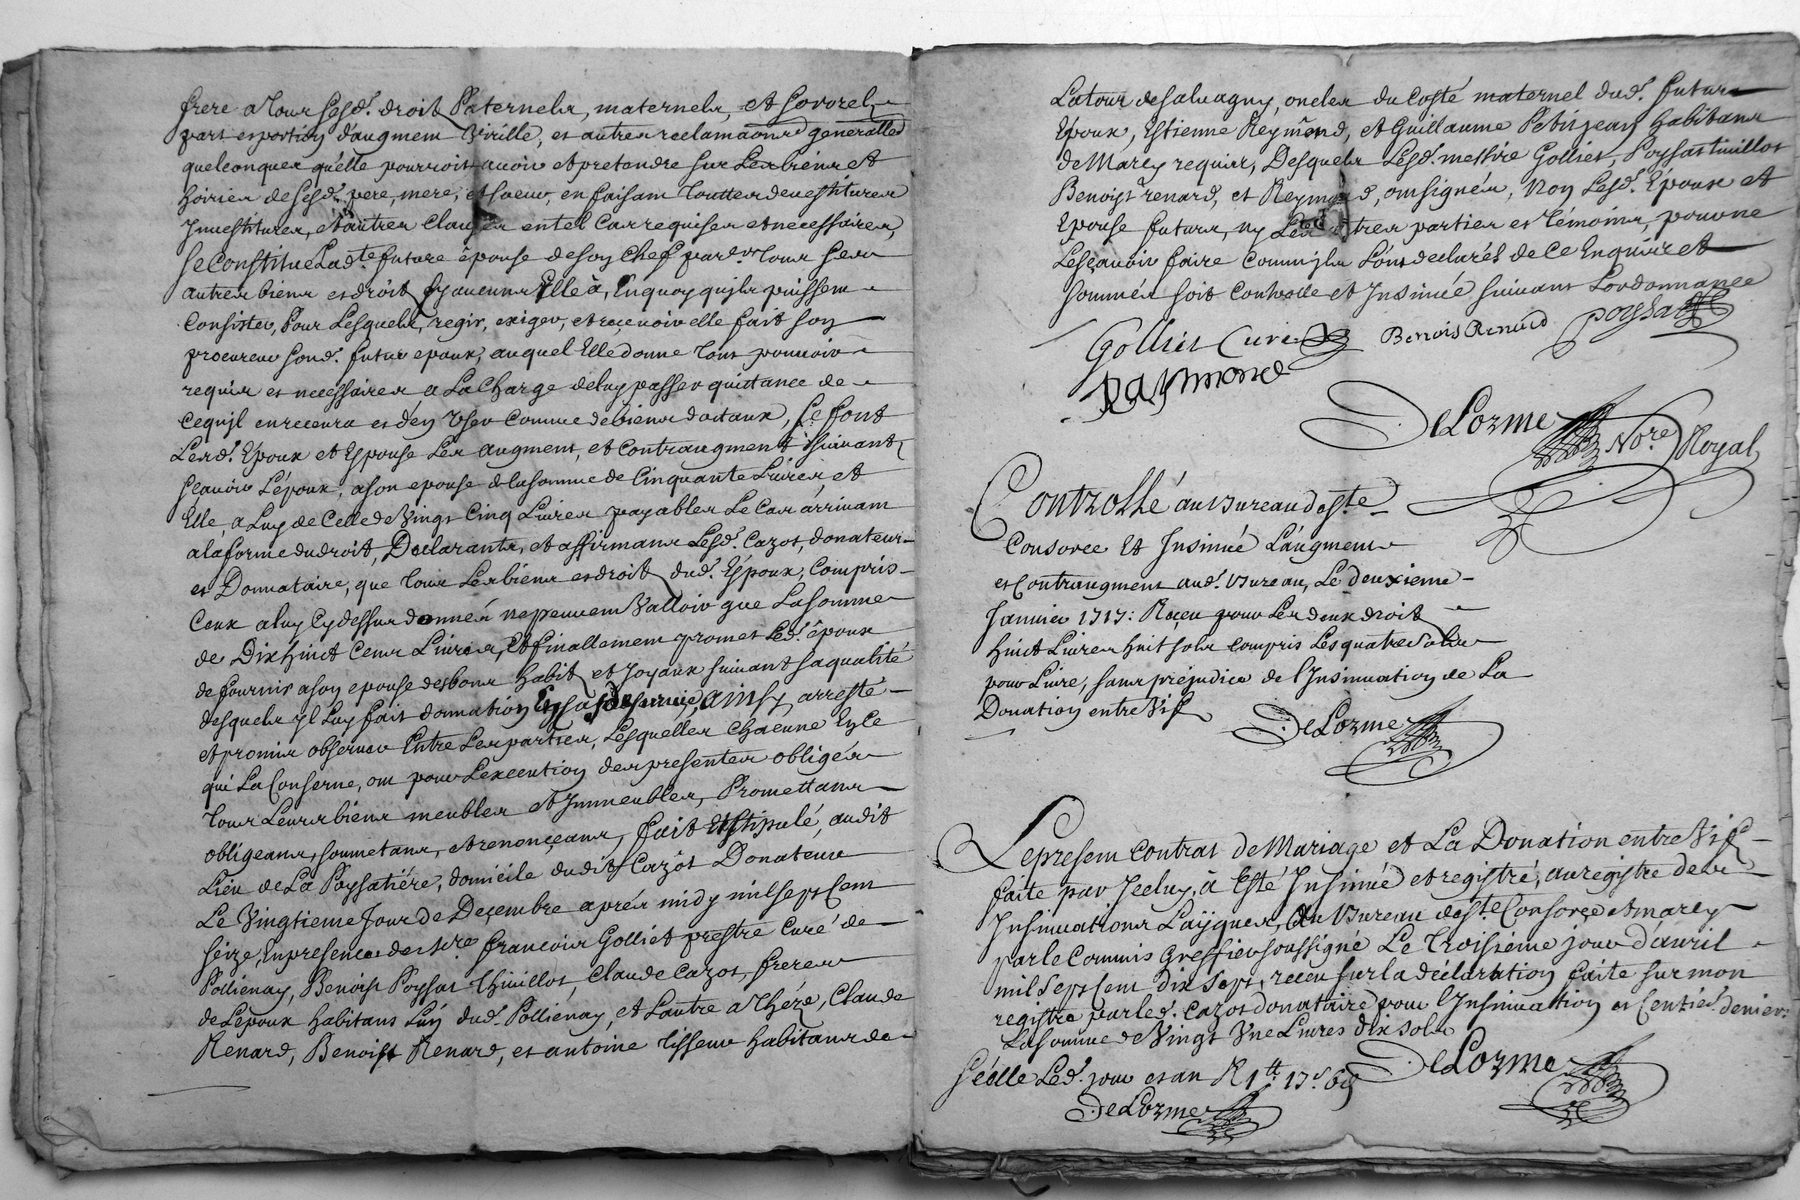 frere a tous sesd. droit Paternels, maternels, et sororels
part et portion d'augment virille, et autres reclamaons generalles
quelconques qu'elle pourroit avoir et pretendre sur Les biens et
hoiries de sesd. pere, mere, et soeur, en faisant touttes devestitures
Jnvestitures, et autres clauses en tel Cas requises et necessaires,
se Constitue Lad.te future épouse de son Chef pard.r tous ses
autres biens et droit sy aucuns Elle à, Enquoy qu'jls puissent
Consister, Pour Lesquels, regir, exiger, et recevoir elle fait son
procureur sond. futur epoux, auquel Elle donne tout pouvoir
requis et necessaires a La Charge de luy passer quittance de
ce qu'jl en recevra et d'en User comme de biens dotaux, se font
Lesd. Epoux et Espouse Les augment, et Contraugment suivants
sçavoir L'époux, a son epouse de la somme de Cinquante Livres et
Elle, a Luy de Celle de Vingt Cinq Livres payables Le Cas arrivant
a la forme du droit, Declarants, et affirmans Lesd. Cazot, donateur
et Donnataire, que tous Les biens et droit dud. Epoux, Compris
Ceux a luy Cy dessus donnés ne peuvent Valloir que La somme
de Dix huict Cents Livres, Et finallement promet Led. époux
de fournir a son epouse des bons habit et Joyaux suivant sa qualité
desquels jl Luy fait donnation En cas de survie, ainsy arresté
et promis observer Entre Les parties, Lesquelles Chacune En Ce
qui La Conserne, ont pour L'execution des presentes obligés
tous Leurs biens meubles et Jmmeubles, Promettans
obligeans, soumetans, et renonçeans, fait et stipulé, audit
Lieu de La Poysatiére, domicile dudit Cazot Donateur
Le Vingtieme Jour de Deçembre aprés midy mil sept Cent
séize, En presence de M.re francois Golliet prestre Curé de
Pollienay, Benoist Poysat Thuillot, Claude Cazot, freres
de L'epoux habitans L'un dud. Pollienay, et L'autre a Thézé, Claude
Renard, Benoist Renard, et antoine tisseur habitans de
Latour de salvagny, oncles du Costé maternel dud. futur
Epoux, Estienne Reymond, et Guillaume Petitjean habitans
de Marcy requis, Desquels Lesd. messire Golliet, Poysat tuillot
Benoist renard, et Reymond, ont signés, Non Lesd. Epoux et
Epouse futurs, ny Les autres parties et témoins, pour ne
Le sçavoir faire comme jls L'ont declarés de Ce Enquis et
sommés soit Controllé et Jnsinué suivant L'ordonnance
Golliet Curé Benois Renard poysat
raymond
DeLorme No.re Royal
Controllé au Bureau de S.te
Consorce Et Jnsinué L'augment
et Contraugment aud. Bureau, Le deuxieme
Janvier 1717: Reçeu pour Les deux droit
huict Livres huit sols compris Les quatre sols
pour Livre, sans préjudice de l'Jnsinuation de La
Donation entre Vif
DeLorme
Le present contrat de Mariage et La Donation entre Vif
faite par Jceluy, à Esté Jnsinué et registré, au registre des
Jnsinuations Laÿques, Au Bureau de S.te Consorçe et Marcy
par le Commis Greffier soussigné Le troisiéme jour d'avril
mil sept Cent Dix sept, receu sur la déclaration faite sur mon
registre par led. Cazot donataire pour l'Jnsinuation et Centié. denier
La somme de Vingt Vne Livres dix sols
DeLorme
séelle Led. jour et an R 1.tt 17.s 6d
DeLorme